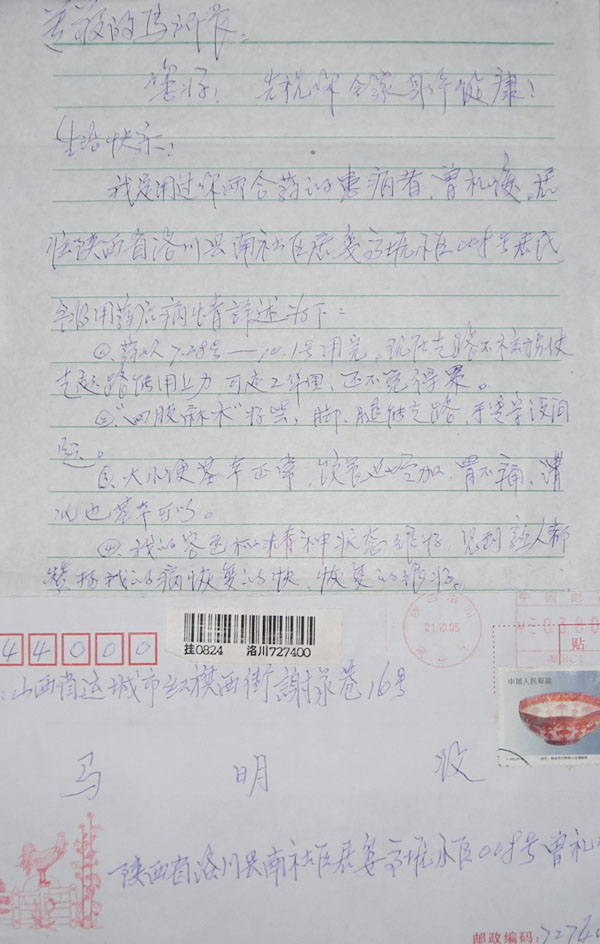 尊敬的马所长：
您好！ 先祝您全家身体健康！
生活快乐！
我是用过您两合药的患病者，曾礼俊，居
住陕西省洛川县南社区居委 009号居民
今将用药后病情详述如下：
①药从7.28号——10.1号用完，现在走路
走起路使用上力 还不觉得累。
②"四肢麻木"好些，脚、腿能走路，手 没问
题。
③大小便基本正常，饮食也增加，胃不痛，
也基本可以。
④我的容色和精神状态很好，见到熟人都
赞扬我的病恢复的快，恢复的很好。
44000
挂0824 洛川727400
21.10.05
中国邮
贴
山西省运城市红旗西街谢家巷16号
中国人民邮政
马 明 收
陕西省洛川县南社区居委 009号曾礼
邮政编码：7274